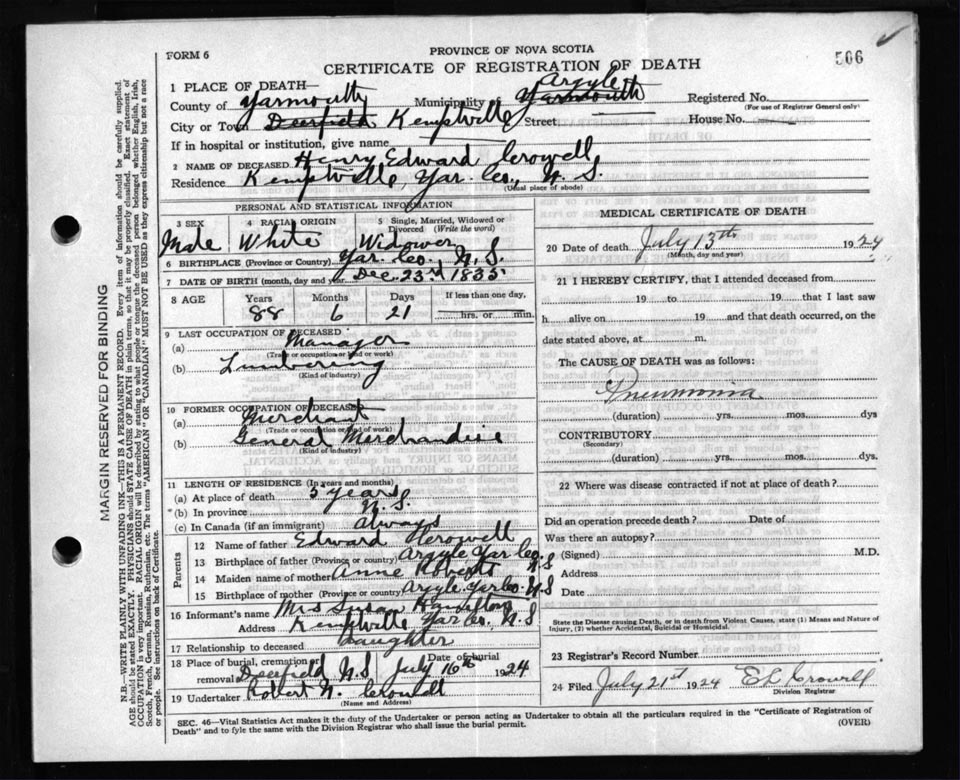 566
FORM 6
PROVINCE OF NOVA SCOTIA
CERTIFICATE OF REGISTRATION OF DEATH
1 PLACE OF DEATH—
Argyle
County of Yarmouth Municipality Yarmouth Registered No.
(For use of Registrar General only)
City or Town Deerfield Kemptville Street House No.
If in hospital or institution, give name
2 NAME OF DECEASED Henry Edward Crowell
Residence Kemptville, Yar. Co., N. S.
(Usual place of abode)
PERSONAL AND STATISTICAL INFORMATION
3 SEX 4 RACIAL ORIGIN 5 Single, Married, Widowed or Divorced (Write the word)
Male White Widower
6 BIRTHPLACE (Province or Country) Yar. Co., N. S.
7 DATE OF BIRTH (month, day and year) Dec. 23rd 1835
8 AGE Years Months Days If less than one day,
88 6 21 hrs. or min.
9 LAST OCCUPATION OF DECEASED
(a) Manager
(Trade or occupation or kind of work)
(b) Lumbering
(Kind of industry)
10 FORMER OCCUPATION OF DECEASED
(a) Merchant
(Trade or occupation or kind of work)
(b) General Merchandise
(Kind of industry)
11 LENGTH OF RESIDENCE (In years and months)
(a) At place of death 5 years
(b) In province N. S.
(c) In Canada (if an immigrant) always
Parents
12 Name of father Edward Crowell
13 Birthplace of father (Province or country) Argyle Yar Co. N S
14 Maiden name of mother Anne Roberts
15 Birthplace of mother (Province or country) Argyle. Yar Co. N S
16 Informant's name Mrs Susan Hamilton
Address Kemptville Yar Co. N. S
17 Relationship to deceased Daughter
18 Place of burial, cremation or removal Deerfield N. S. Date of burial July 16th 1924
19 Undertaker Robert N. Crowell
(Name and Address)
MEDICAL CERTIFICATE OF DEATH
20 Date of death July 13th 1924
(Month, day and year)
21 I HEREBY CERTIFY, that I attended deceased from
19 to 19 that I last saw
h alive on 19 and that death occurred, on
date stated above, at m.
The CAUSE OF DEATH was as follows:
Pneumonia
(duration) yrs. mos. dys
CONTRIBUTORY
(Secondary)
(duration) yrs. mos. dys.
22 Where was disease contracted if not at place of death?
Did an operation precede death? Date of
Was there an autopsy?
(Signed) M.D.
Address
Date
State the Disease causing Death, or in death from Violent Causes, state (1) Means and Nature of
Injury, (2) whether Accidental, Suicidal or Homicidal.
23 Registrar's Record Number
24 Filed July 21st 1924 E L Crowell
Division Registrar
SEC. 46—Vital Statistics Act makes it the duty of the Undertaker or person acting as Undertaker to obtain all the particulars required in the "Certificate of Registration of
Death" and to fyle the same with the Division Registrar who shall issue the burial permit. (OVER)
MARGIN RESERVED FOR BINDING
N.B.—WRITE PLAINLY WITH UNFADING INK—THIS IS A PERMANENT RECORD. Every item of information should be carefully supplied.
AGE should be stated EXACTLY. PHYSICIANS should STATE CAUSE OF DEATH in plain terms, so that it may be properly classified. Exact statement of
OCCUPATION is very important. RACIAL ORIGIN will be described by stating to what people or tongue the deceased person belonged whether English, Irish,
Scotch, French, German, Russian, Ruthenian, etc. The terms "AMERICAN" OR "CANADIAN" MUST NOT BE USED as they express citizenship but not a race
or people. See instructions on back of Certificate.